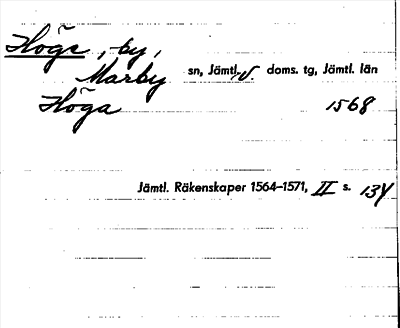 Höge, by,
Marby sn, Jämtl. v. doms. tg, Jämtl. län
Höga 1568
Jämtl. Räkenskaper 1564–1571, II s. 134